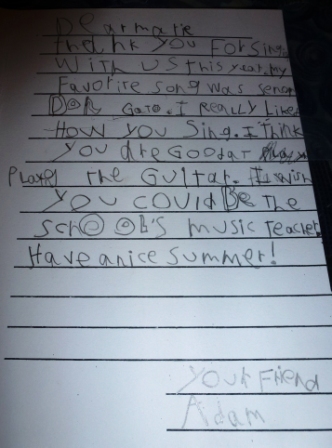 Dear Marie
thank you For sing
With US this year. my
Favorite song was senor
Don Gato. I Really Like
How you Sing. I think
you are Good at
Played The Guitar. I wish
you could Be The
school's music teacher.
Have a nice summer!
your Friend
Adam